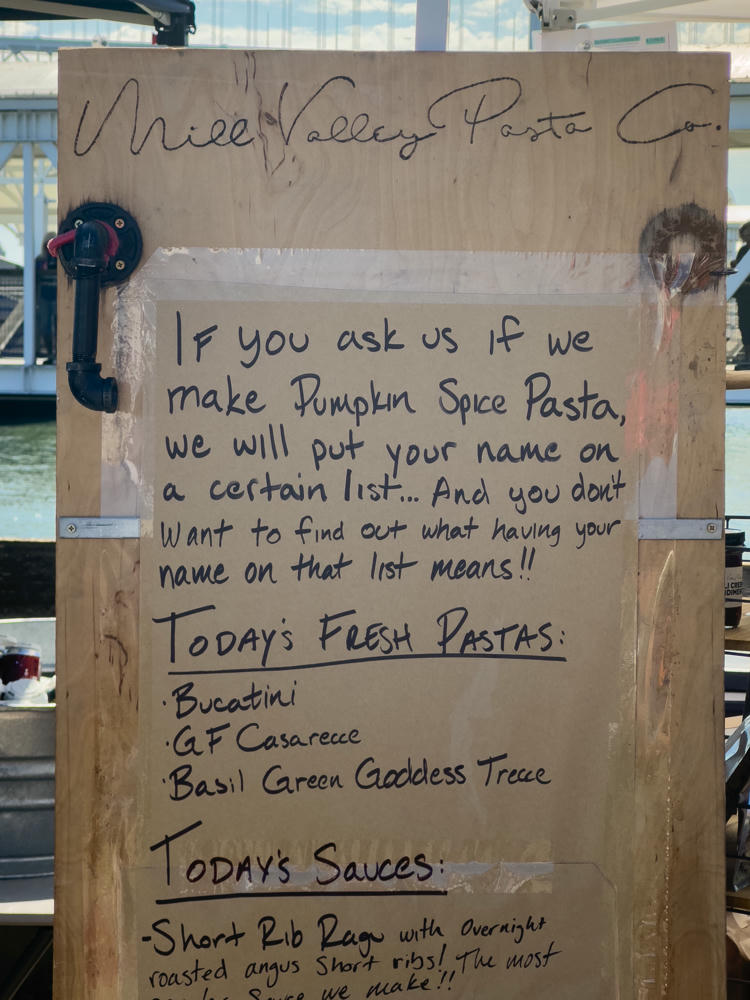 Mill Valley Pasta Co.
If you ask us if we
make Pumpkin Spice Pasta,
we will put your name on
a certain list... And you don't
want to find out what having your
name on that list means!!
TODAY'S FRESH PASTAS:
·Bucatini
·GF Casarecce
·Basil Green Goddess Trecce
TODAY'S SAUCES:
-Short Rib Ragu with overnight
roasted angus short ribs! The most
sauce we make!!